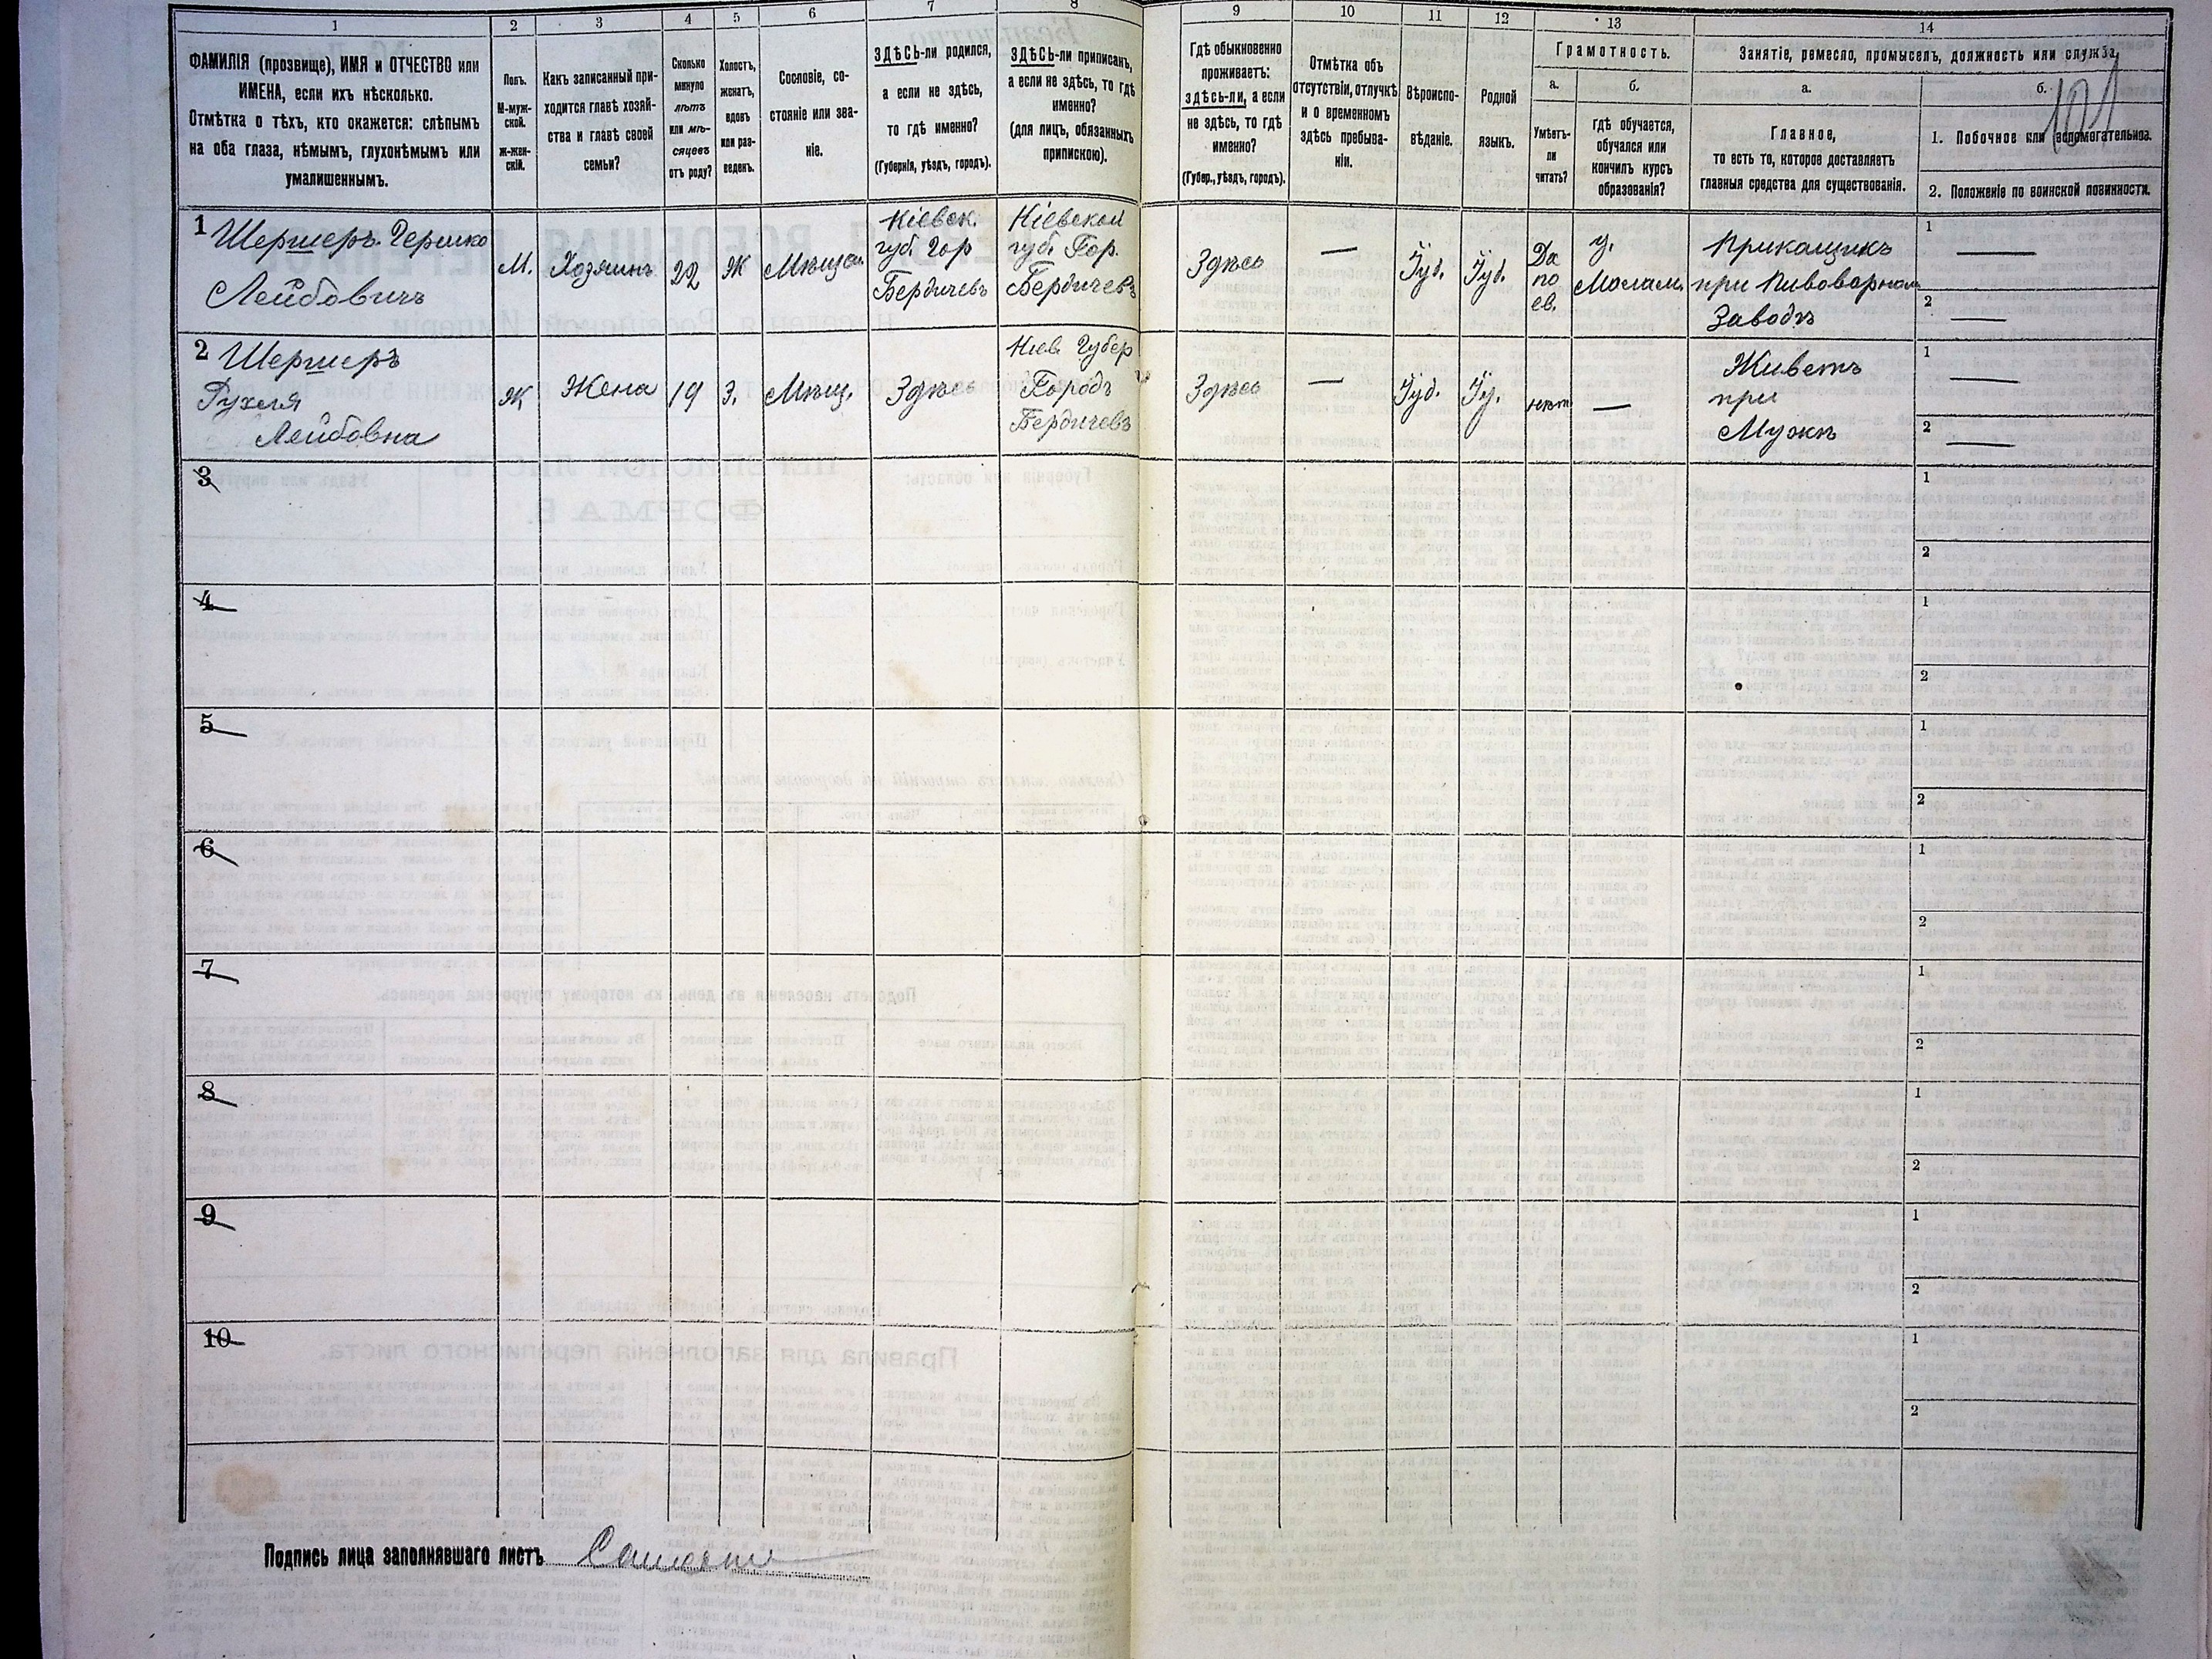 1
2
3
4
5
6
7
8
9
10
11
12
13
14
ФАМИЛІЯ (прозвище), ИМЯ и ОТЧЕСТВО или
ИМЕНА, если ихъ нѣсколько.
Отмѣтка о тѣхъ, кто окажется: слѣпымъ
на оба глаза, нѣмымъ, глухонѣмымъ или
умалишеннымъ.
Полъ.
М-муж-
ской.
Ж-жен-
скій.
Какъ записанный при-
ходится главѣ хозяй-
ства и главѣ своей
семьи?
Сколько
минуло
лѣтъ
или мѣ-
сяцевъ
отъ роду?
Холостъ,
женатъ,
вдовъ
или раз-
веденъ.
Сословіе, со-
стояніе или зва-
ніе.
ЗДѢСЬ-ли родился,
а если не здѣсь,
то гдѣ именно?
(Губернія, уѣздъ, городъ).
ЗДѢСЬ-ли приписанъ,
а если не здѣсь, то гдѣ
именно?
(для лицъ, обязанныхъ
припискою).
Гдѣ обыкновенно
проживаетъ:
здѣсь-ли, а если
не здѣсь, то гдѣ
именно?
(Губер., уѣздъ, городъ).
Отмѣтка объ
отсутствіи, отлучкѣ
и о временномъ
здѣсь пребыва-
ніи.
Вѣроиспо-
вѣданіе.
Родной
языкъ.
Грамотность.
а.
б.
Умѣетъ-
ли
читать?
Гдѣ обучается,
обучался или
кончилъ курсъ
образованія?
Занятіе, ремесло, промыселъ, должность или служба.
а.
б.
Главное,
то есть то, которое доставляетъ
главныя средства для существованія.
1. Побочное или вспомогательное.
2. Положеніе по воинской повинности.
101
1 Шершеръ Гершко
Лейбовичъ
М.
Хозяинъ
22
Ж
Мѣщан
Кіевск.
губ. Гор
Бердичевъ
Кіевской
губ. Гор.
Бердичевъ
Здѣсь
—
Іуд.
Іуд.
Да
по
ев.
У.
Мелам.
Прикащикъ
при Пивоварном
Заводѣ
1
—
2
—
2 Шершеръ
Рухля
Лейбовна
Ж
Жена
19
З.
Мѣщ.
Здѣсь
Кіев. Губер
Городъ
Бердичевъ
Здѣсь
—
Іуд.
Іу.
нѣт
—
Живетъ
при
Мужѣ
1
—
2
—
3
1
2
4
1
2
5
1
2
6
1
2
7
1
2
8
1
2
9
1
2
10
1
2
Подпись лица заполнявшаго листъ